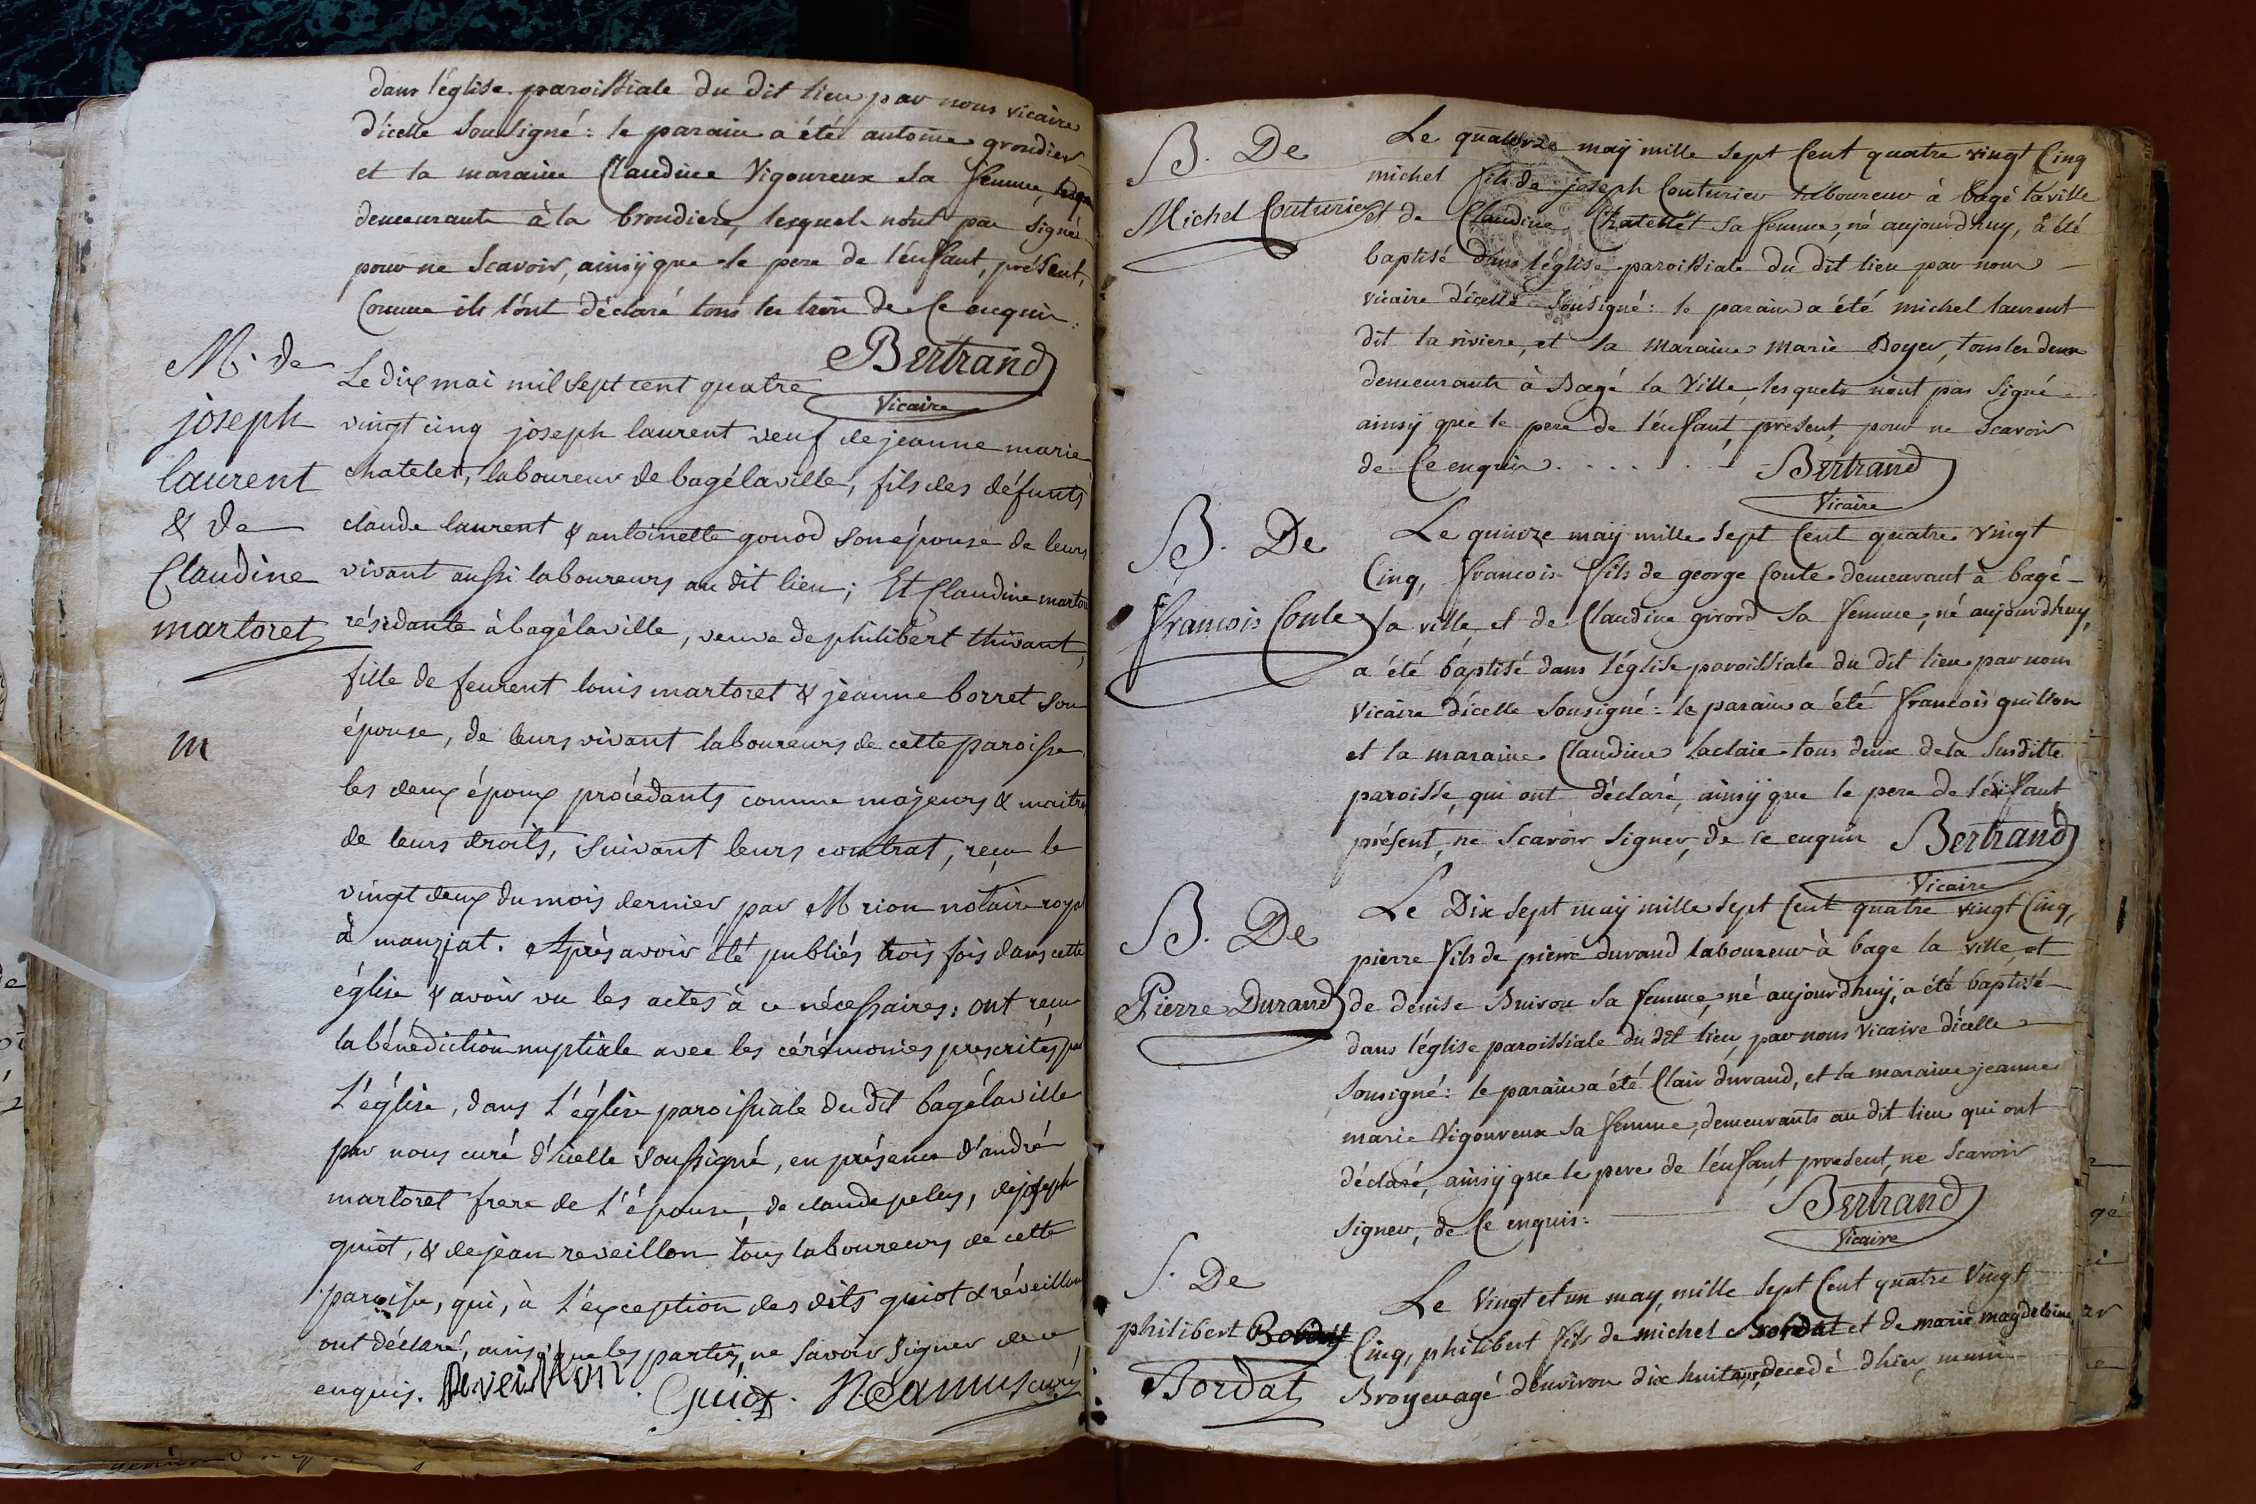 dans l'église paroissiale du dit lieu par nous vicaire
d'icelle sousigné: le parain a été antoine grondier
et la maraine Claudine Vigoureux sa femme,
demeurants à la brondiere, lesquels n'ont pas signé
pour ne scavoir, ainsÿ que le pere de l'enfant, présent,
Comme ils l'ont déclaré tous les trois de Ce enquis.
Bertrand
Vicaire
M. de
joseph
laurent
& de
Claudine
martoret
m
Le dix mai mil sept cent quatre
vingt cinq joseph laurent veuf de jeanne marie
chatelet, laboureur de bagélaville, fils des défunts
claude laurent & antoinette gonod son épouse de leurs
vivant aussi laboureurs au dit lieu; Et Claudine martoret
résidante à bagélaville, veuve de philibert thivant,
fille de feurent louis martoret & jeanne borret son
épouse, de leurs vivant laboureurs de cette paroisse
les deux époux procédants comme majeurs & maitres
de leurs droits, suivant leurs contrat, reçu le
vingt deux du mois dernier par M rion notaire royal
à manziat. Après avoir été publiés trois fois dans cette
église & avoir vu les actes à ce nécessaires: ont reçu
la bénédiction nuptiale avec les cérémonies prescrites par
l'église, dans l'église paroissiale du dit bagélaville
par nous curé d'icelle soussigné, en présence d'andré
martoret frere de l'épouse, de claude peley, de joseph
guiot, & de jean reveillon tous laboureurs de cette
paroisse, qui, à l'exception des dits guiot & réveillon
ont déclaré, ainsi que les parties, ne savoir signer de ce
enquis. Reveillon. Guiot. Néamus curé
B. De
Michel Couturier
Le quatorze maÿ mille sept Cent quatre vingt Cinq
michel fils de joseph Couturier laboureur à bagé la ville
et de Claudine Chatelet sa femme, né aujourdhuy, a été
baptisé dans l'église paroissiale du dit lieu par nous
vicaire d'icelle sousigné: le parain a été michel laurent
dit la riviere, et la maraine marie Boyer, tous les deux
demeurants à Bagé la Ville, lesquels n'ont pas signé
ainsÿ que le pere de l'enfant, present, pour ne scavoir
de Ce enquis. . . . . . .
Bertrand
Vicaire
B. De
francois Conte
Le quinze maÿ mille sept Cent quatre vingt
Cinq, francois fils de george Conte demeurant à bagé
la ville, et de Claudine girord sa femme, né aujourdhuy,
a été baptisé dans l'église paroissiale du dit lieu par nous
Vicaire d'icelle sousigné: le parain a été francois guillon
et la maraine Claudine Laclaie tous deux de la Susditte
paroisse, qui ont déclaré, ainsÿ que le pere de l'enfant
présent, ne scavoir signer, de ce enquis Bertrand
Vicaire
B. De
Pierre Durand
Le Dix sept maÿ mille sept Cent quatre vingt Cinq,
pierre fils de pierre durand laboureur à bage la ville, et
de denise Buiron sa femme, né aujourdhuÿ, a été baptisé
dans l'église paroissiale du dit lieu, par nous Vicaire d'icelle
Sousigné: le parain a été Clair durand, et la maraine jeanne
marie Vigoureux sa femme, demeurants au dit lieu qui ont
déclaré, ainsÿ que le pere de l'enfant, present, ne scavoir
signer, de Ce enquis.
Bertrand
Vicaire
S. De
philibert
Bordat
Le Vingt et un maÿ, mille sept Cent quatre Vingt
Cinq, philibert fils de michel Bordat et de marie magdeleine
Broyer agé d'environ dix huit ans, decedé d'hier, muni